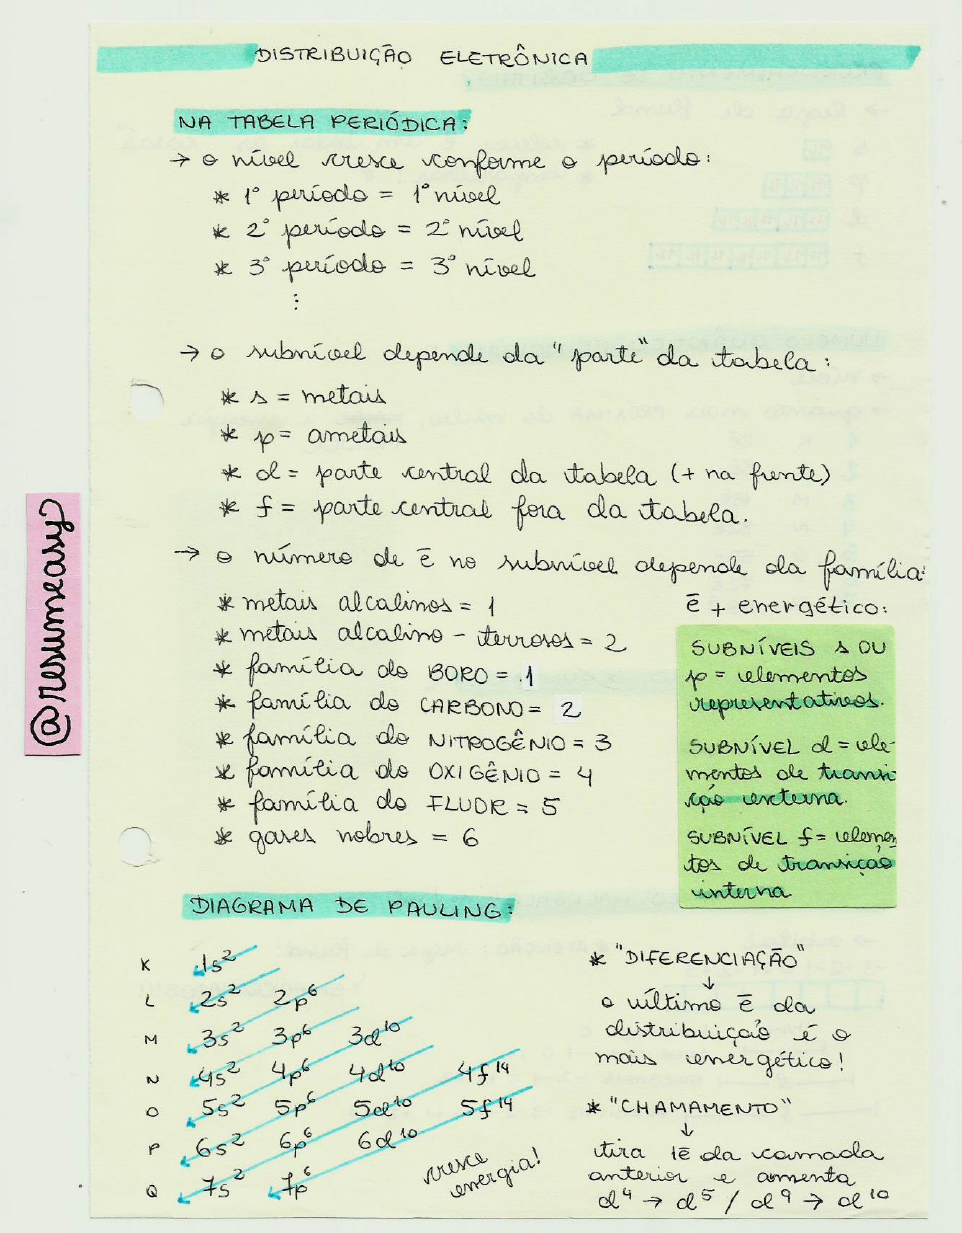 DISTRIBUIÇÃO ELETRÔNICA
NA TABELA PERIÓDICA:
→ o nível cresce conforme o período:
* 1º período = 1º nível
* 2º período = 2º nível
* 3º período = 3º nível
⋮
→ o subnível depende da "parte" da tabela:
* s = metais
* p = ametais
* d = parte central da tabela (+ na frente)
* f = parte central fora da tabela.
→ o número de ē no subnível depende da família:
* metais alcalinos = 1
* metais alcalino-terrosos = 2
* família do BORO = 1
* família do CARBONO = 2
* família do NITROGÊNIO = 3
* família do OXIGÊNIO = 4
* família do FLUOR = 5
* gases nobres = 6
ē + energético:
SUBNÍVEIS s OU
p = elementos
representativos.
SUBNÍVEL d = ele-
mentos de transi-
ção externa.
SUBNÍVEL f = elemen
tos de transição
interna
@resumeasy
DIAGRAMA DE PAULING:
K 1s²
L 2s² 2p⁶
M 3s² 3p⁶ 3d¹⁰
N 4s² 4p⁶ 4d¹⁰ 4f¹⁴
O 5s² 5p⁶ 5d¹⁰ 5f¹⁴
P 6s² 6p⁶ 6d¹⁰
Q 7s² 7p⁶
cresce
energia!
* "DIFERENCIAÇÃO"
↓
o último ē da
distribuição é o
mais energético!
* "CHAMAMENTO"
↓
tira 1ē da camada
anterior e amenta
d⁴ → d⁵ / d⁹ → d¹⁰